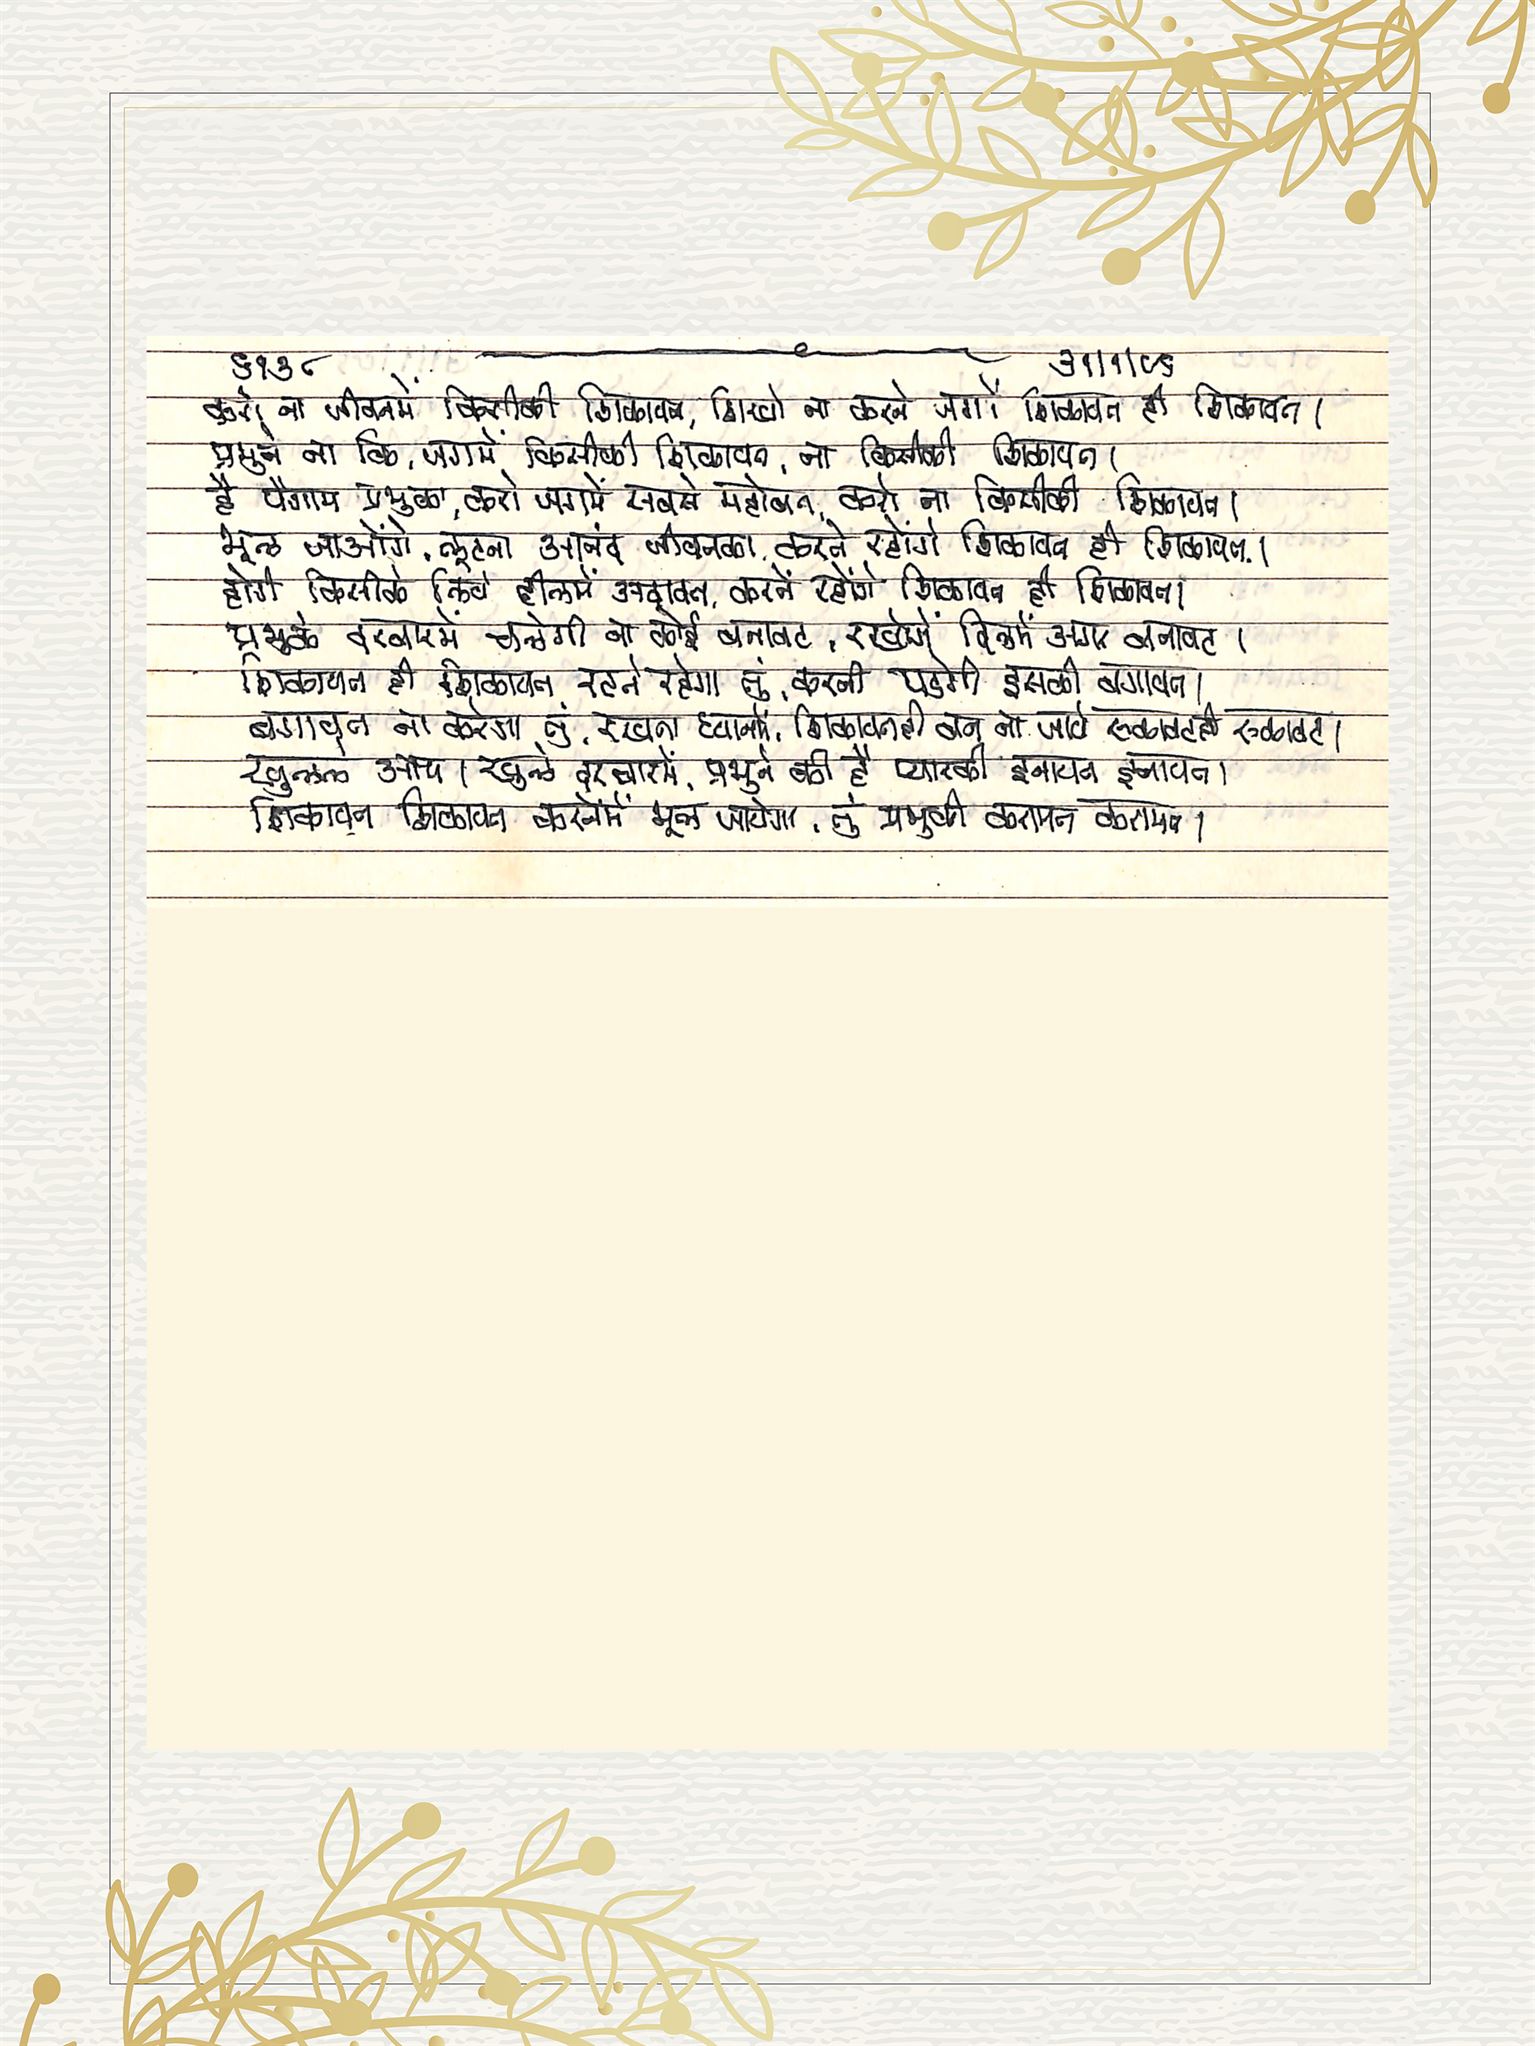 ६१३८ ३१/१/९६
करो ना जीवनमें किसीकी शिकायत, शिखो ना करने जगमें शिकायत ही शिकायत।
प्रभुने ना कि, जगमें किसीकी शिकायत, ना किसीकी शिकायत।
है पैगाम प्रभुका, करो जगमें सबसे महोबत, करो ना किसीकी शिकायत।
भूल जाओंगे, लूटना आनंद जीवनका, करते रहोंगे शिकायत ही शिकायत।
होगी किसीके लिये दीलमें अदावत, करतें रहोंगे शिकायत ही शिकायत।
प्रभुके दरबारमें चलेगी ना कोई बनावट, रखोगे दिलमें अगर बनावट।
शिकायत ही शिकायत रटते रहेगा तुं, करनी पडेगी इसकी बगावत।
बगावत ना करेगा तुं, रखना ध्यानमें, शिकायतही बन ना जाये रुकावटही रुकावट।
खुल्ले दरबारमें, प्रभुने की है प्यारकी इनायत इनायत।
शिकायत शिकायत करनेमें भूल जायेगा, तुं प्रभुकी करामत करामत।